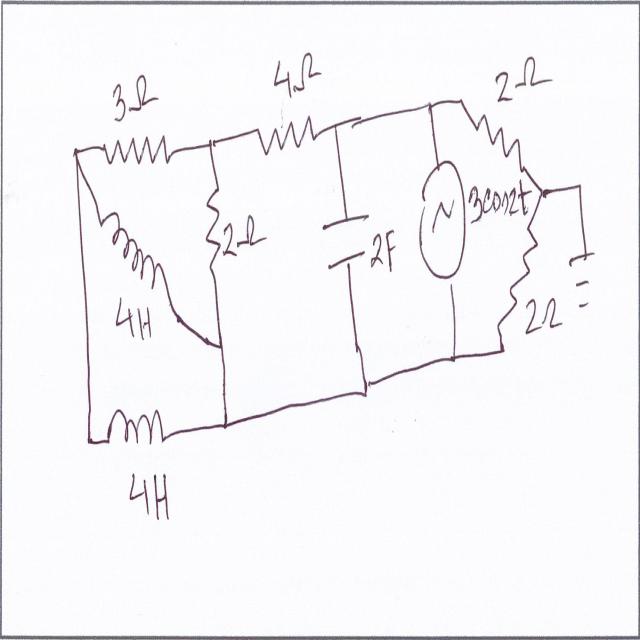 3Ω
4Ω
2Ω
2Ω
2F
3cos2t
4H
2Ω
4H